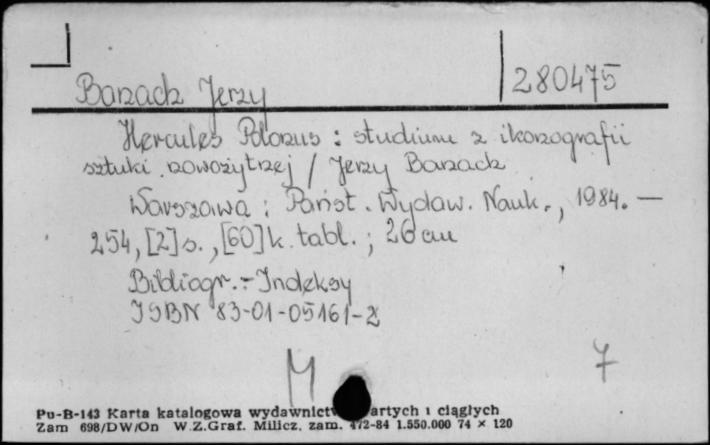 Banach Jerzy
280475
Hercules Polonus : studium z ikonografii
sztuki nowożytnej / Jerzy Banach
Warszawa : Państ. Wydaw. Nauk., 1984. —
254, [2] s., [60] k. tabl. ; 26 cm
Bibliogr. - Indeksy
ISBN 83-01-05161-2
M 7
Pu-B-143 Karta katalogowa wydawnictw artych i ciągłych
Zam 698/DW/On W.Z.Graf. Milicz. zam. 472-84 1.550.000 74 × 120